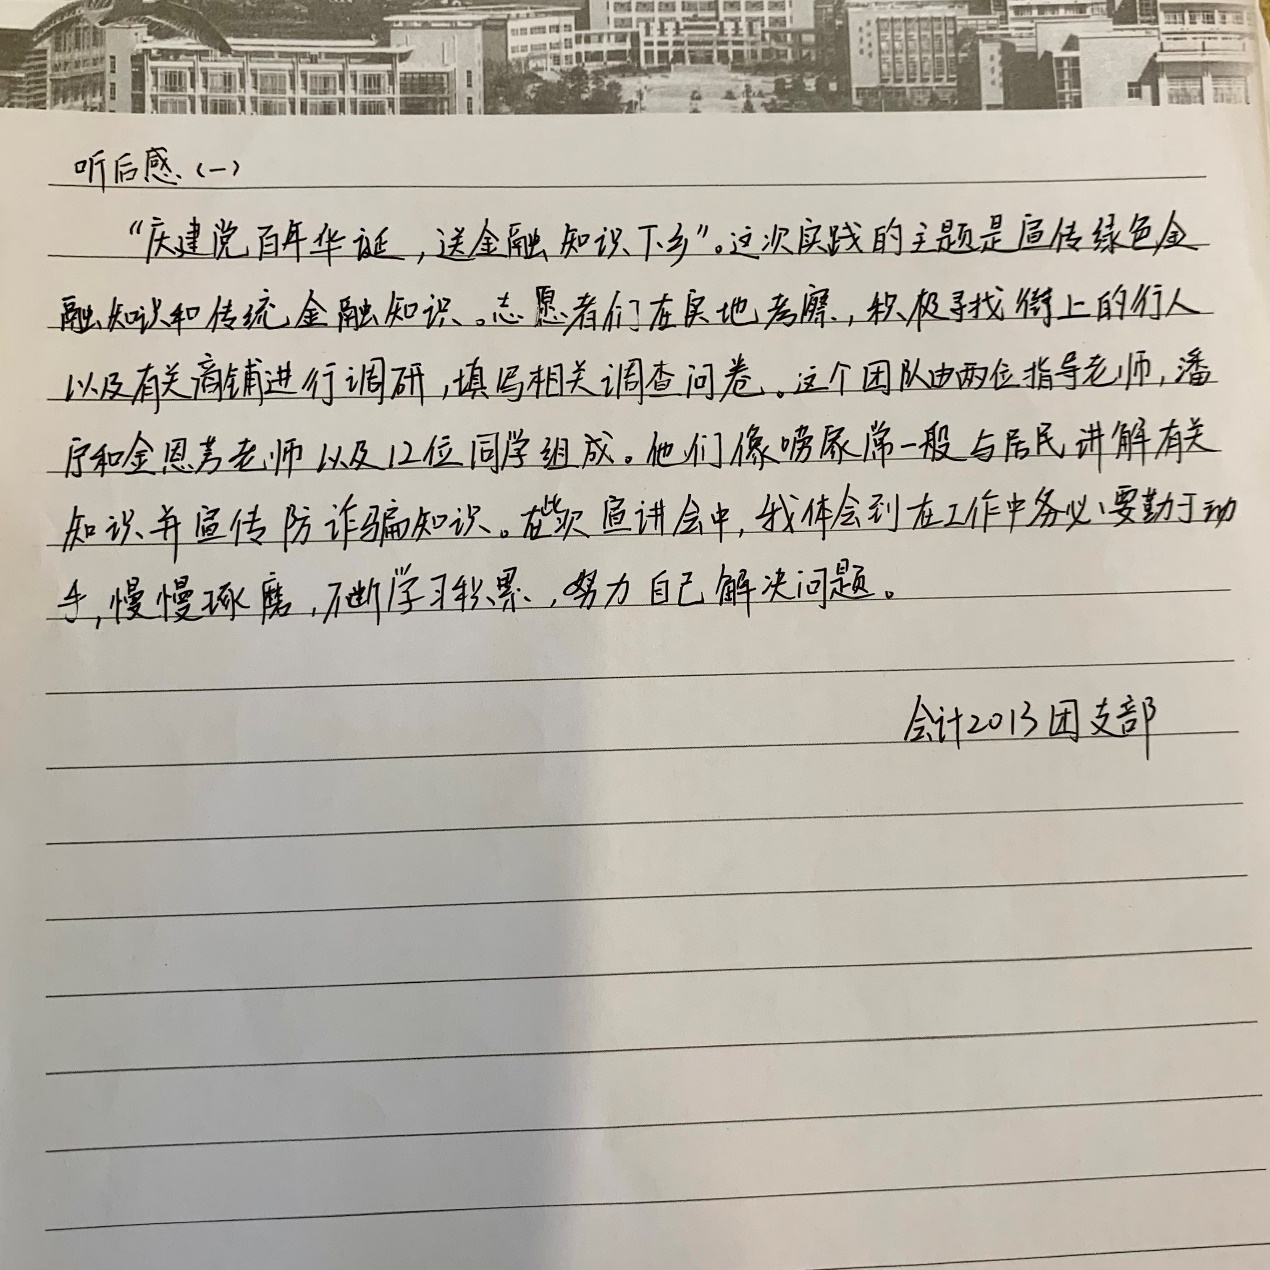 听后感（一）
“庆建党百年华诞，送金融知识下乡”。这次实践的主题是宣传绿色金
融知识和传统金融知识。志愿者们在实地考察，积极寻找街上的行人
以及有关商铺进行调研，填写相关调查问卷。这个团队由两位指导老师，潘
和金恩老师以及12位同学组成。他们像唠家常一般与居民讲解有关
知识并宣传防诈骗知识。在此次宣讲会中，我体会到在工作中务必要勤于动
手，慢慢琢磨，不断学习积累，努力自己解决问题。
会计2013团支部